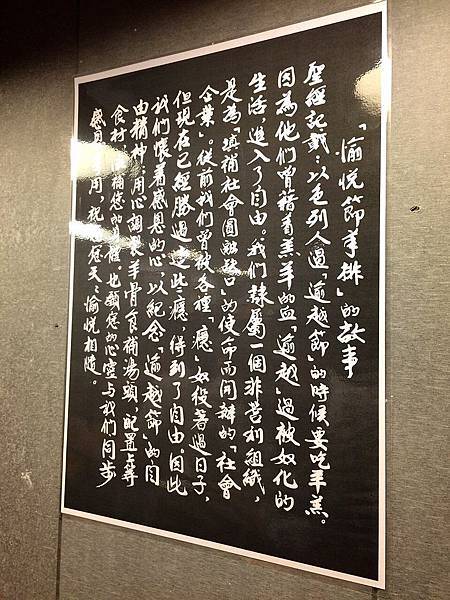 「愉悅節羊排」的故事
聖經記載：以色列人過「逾越節」的時候要吃羊羔。
因為他們曾藉着羔羊的血「逾越」過被奴化的
生活，進入了自由。我們隸屬一個非營利組織，
是為「填補社會圓融缺口」的使命而開辦的「社會
企業」。從前我們曾被各種「癮」奴役著過日子，
但現在已經勝過這些癮，得到了自由。因此
我們懷着感恩的心，以紀念「逾越節」的自
由精神，用心調製羊骨食補湯頭，配置上等
食材，補您的身體。也願您的心靈與我們同步
感恩用，祝您天天愉悅相隨。